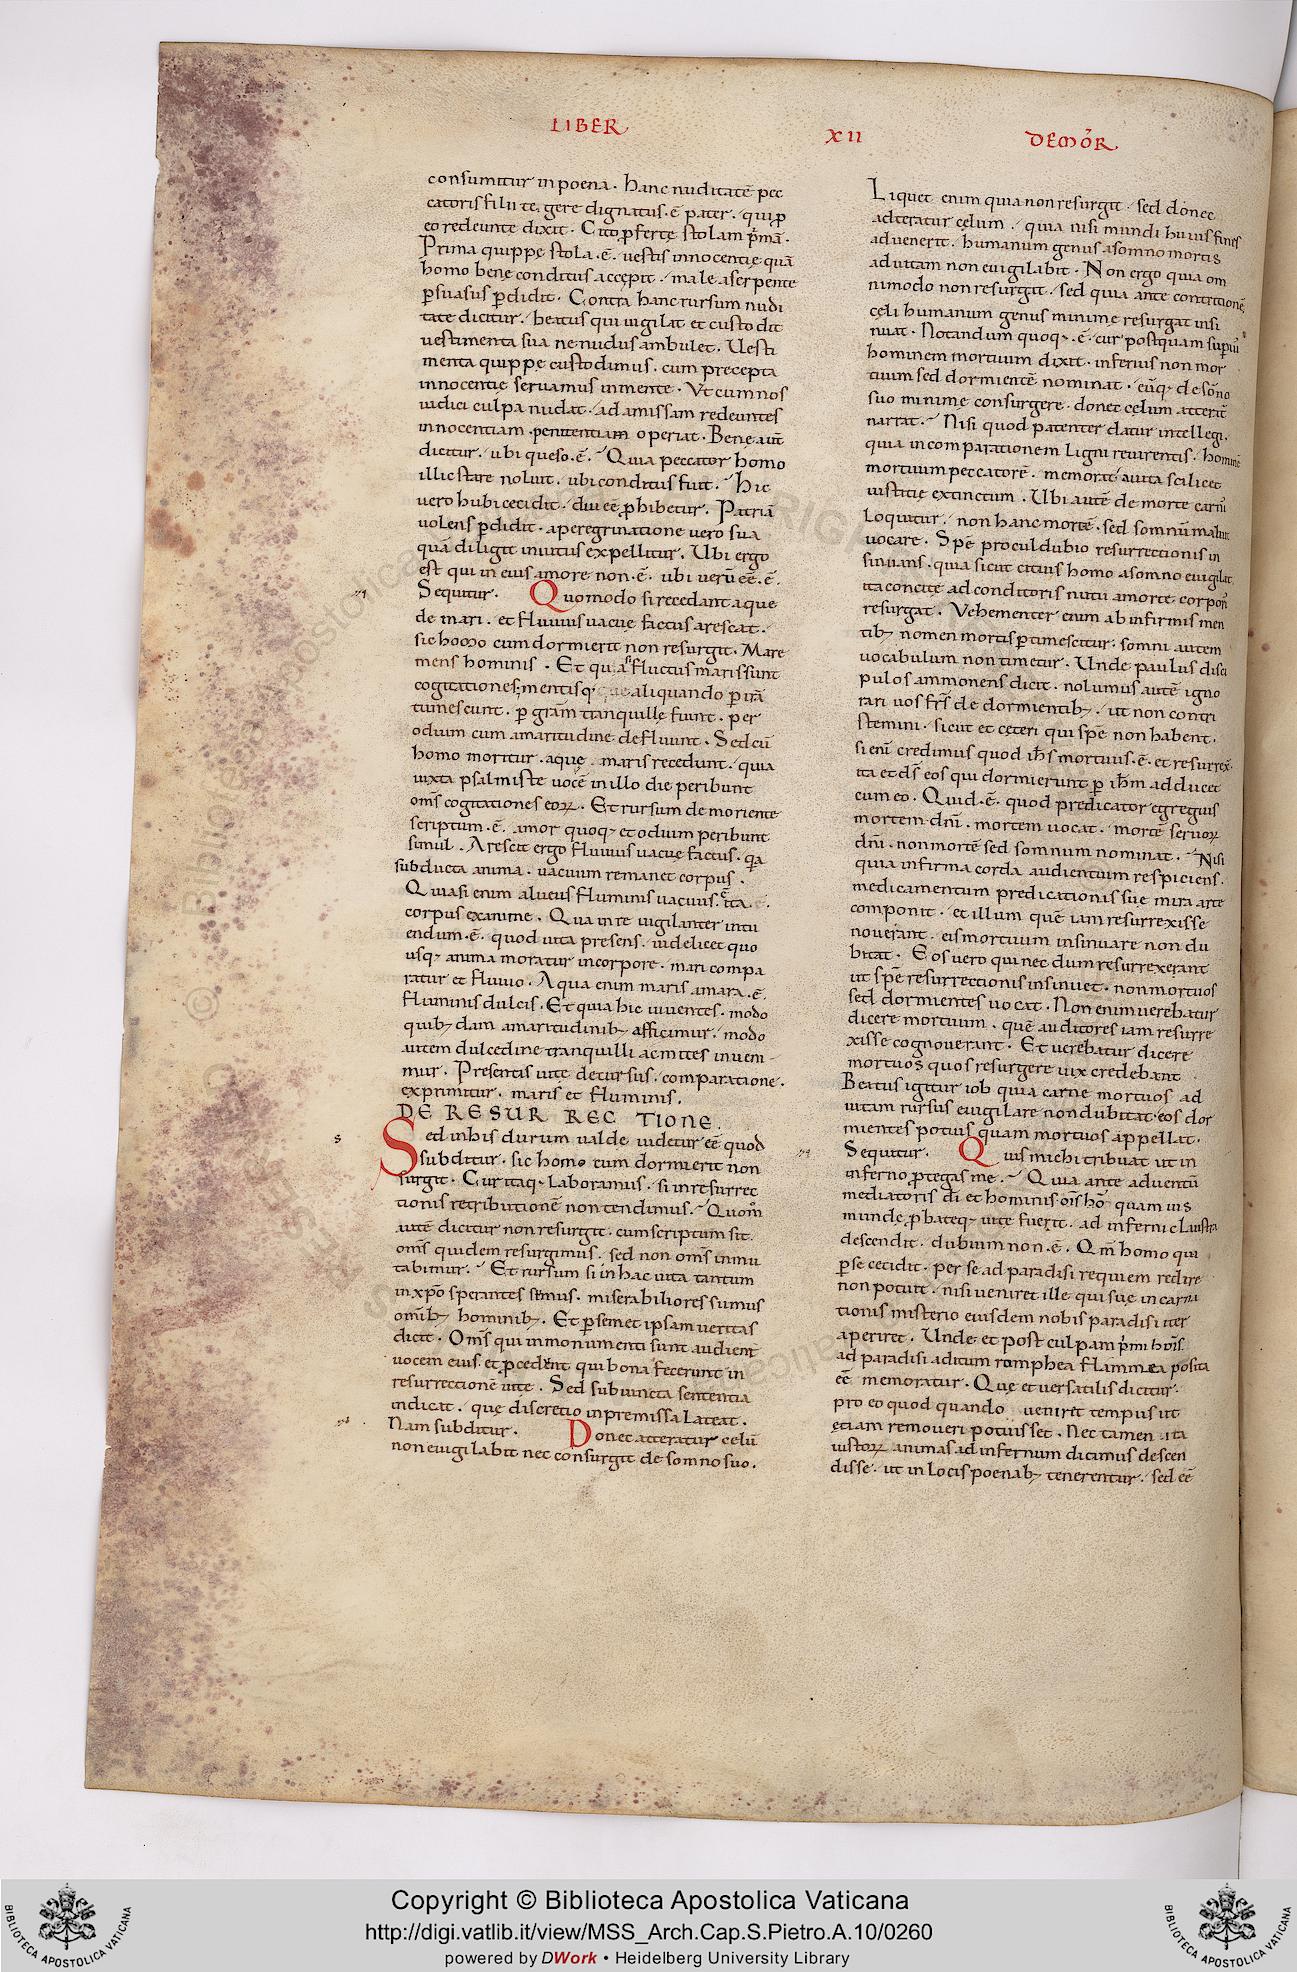 LIBER XII DEMOR̃.
consumitur in poena. hanc nuditatē pec
catoris filii tegere dignatus. ē pater. qui p̱
eo redeunte dixit. Cito p̱ferte stolam p̄mā.
Prima quippe stola. ē. uestis innocentię quā
homo bene conditus accępit. male a serpente
ꝑsuasus ꝑdidit. Contra hanc rursum nudi
tatē dicitur. beatus qui uigilat et custodit
uestimenta sua ne nudus ambulet. Uesti
menta quippe custodimus. cum precepta
innocentię seruamus in mente. Ut cum nos
iudici culpa nudat. ad amissam redeuntes
innocentiam penitentiam operiat. Bene aut̄
dicitur. ubi queso. ē. Quia peccator homo
illic stare noluit. ubi conditus fuit. Hic
uero hubi cecidit. diu eē ꝓhibetur. Patriā
uolens ꝑdidit. a peregrinatione uero sua
quā diligit inuitus expellitur. Ubi ergo
est qui in eius amore non. ē. ubi uerū eē. ē.
Sequitur. Quomodo si recedant aque
de mari. et fluuius uacuę factus arescat.
sic homo cum dormierit non resurgit. Mare
mens hominis. Et quasi fluctus maris sunt
cogitationes mentis quę aliquando ꝑ irā
tumescunt. ꝑ grām tranquillę fiunt. per
odium cum amaritudine defluunt. Sed cū
homo moritur. aquę maris recedunt. quia
iuxta psalmiste uocē in illo die peribunt
om̄s cogitationes eoꝝ. Et rursum de moriente
scriptum. ē. amor quoq; et odium peribunt
simul. Arescit ergo fluuius uacuę factus. qa
subducta anima. uacuum remanet corpus.
Quasi enim alueus fluminis uacuus. ita. ē.
corpus exanime. Qua in re uigilanter intu
endum. ē. quod uita presens. uidelicet quo
usq; anima moratur in corpore. mari compa
ratur et fluuio. Aqua enim maris amara. ē.
fluminis dulcis. Et quia hic uiuentes. modo
quib; dam amaritudinib; afficimur. modo
autem dulcedine tranquilli ac mites inueni
mur. Presentis uite decursus. comparatione.
exprimitur. maris et fluminis.
DE RESURRECTIONE.
Sed in his durum ualde uidetur eē quod
subditur. sic homo cum dormierit non
surgit. Cur itaq; laboramus. si in resurrec
tionis retributionē non tendimus. Quom̊
autē dicitur non resurgit. cum scriptum sit.
om̄s quidem resurgimus. sed non om̄s inmu
tabimur. Et rursum si in hac uita tantum
in xp̄o sperantes sumus. miserabiliores sumus
omib; hominib;. Et ꝑ semet ipsam ueritas
dicit. Om̄s qui in monumenti sunt audient
uocem eius. et ꝓcedent qui bona fecerunt in
resurrectionē uitę. Sed subiuncta sententia
indicat. quę discretio in premissa lateat.
Nam subditur. Donec atteratur celū
non euigilabit nec consurgit de somno suo.
Liquet enim quia non resurgit. sed donec
adteratur cęlum. quia nisi mundi huius finis
aduenerit. humanum genus a somno mortis
ad uitam non euigilabit. Non ergo quia om
nimodo non resurgit. sed quia ante contritionē
cęli humanum genus minime resurgat insi
nuat. Notandum quoq;. ē. cur postquam supius
hominem mortuum dixit. inferius non mor
tuum sed dormientē nominat. eūq; de sōno
suo minime consurgere. donec cęlum atterat̄
narrat. Nisi quod patenter datur intellegi.
quia in comparationem ligni reuirentis. hominē
mortuum peccatorē. memorat a uita scilicet
iustitię extinctum. Ubi autē de morte carnis
loquitur. non hanc mortē. sed somnū maluit
uocare. Spē procul dubio resurrectionis in
sinuans. quia sicut citius homo a somno euigilat
ita concite ad conditoris nutū a morte corporis
resurgat. Vehementer enim ab infirmis men
tib; nomen mortis ꝑtimescitur. somni autem
uocabulum non timetur. Unde paulus disci
pulos ammonens dicit. nolumus autē igno
rari uos fr̄s de dormientib;. ut non contri
stemini. sicut et cęteri qui spē non habent.
si enī credimus quod ih̄s mortuus. ē. et resurrex̄.
ita et ds̄ eos qui dormierunt ꝑ ih̄m adducet
cum eo. Quid. ē. quod predicator egregius
mortem dn̄i. mortem uocat. mortē seruoꝝ
dn̄i. non mortē sed somnum nominat. Nisi
quia infirma corda audientium respiciens.
medicamentum predicationis sue mira arte
componit. et illum quē iam resurrexisse
nouerant. eis mortuum insinuare non du
bitat. Eos uero qui nec dum resurrexerant
ut spē resurrectionis insinuet. non mortuos
sed dormientes uocat. Non enim uerebatur
dicere mortuum. quē auditores iam resurre
xisse cognouerant. Et uerebatur dicere
mortuos quos resurgere uix credebant.
Beatus igitur iob quia carne mortuos ad
uitam rursus euigilare non dubitat. eos dor
mientes potius quam mortuos appellat.
Sequitur. Quis michi tribuat ut in
inferno ꝓtegas me. Quia ante aduentū
mediatoris di et hominis. ois hō quamuis
mundę ꝓbateq; uitę fuerit. ad inferni claustra
descendit. dubium non. ē. Qm̄ homo qui
ꝑ se cecidit. per se ad paradisi requiem redire
non potuit. nisi ueniret ille qui suę incarna
tionis misterio eiusdem nobis paradisi iter
aperiret. Unde et post culpam p̄mi hoīs.
ad paradisi aditum romphea flammea posita
eē memoratur. Quę et uersatilis dicitur.
pro eo quod quando ueniret tempus ut
etiam remoueri potuisset. Nec tamen ita
iustoꝝ animas ad infernum dicimus descen
disse. ut in locis poenab; tenerentur. sed eē
Copyright © Biblioteca Apostolica Vaticana
http://digi.vatlib.it/view/MSS_Arch.Cap.S.Pietro.A.10/0260
powered by DWork • Heidelberg University Library
BIBLIOTECA APOSTOLICA VATICANA
BIBLIOTECA APOSTOLICA VATICANA